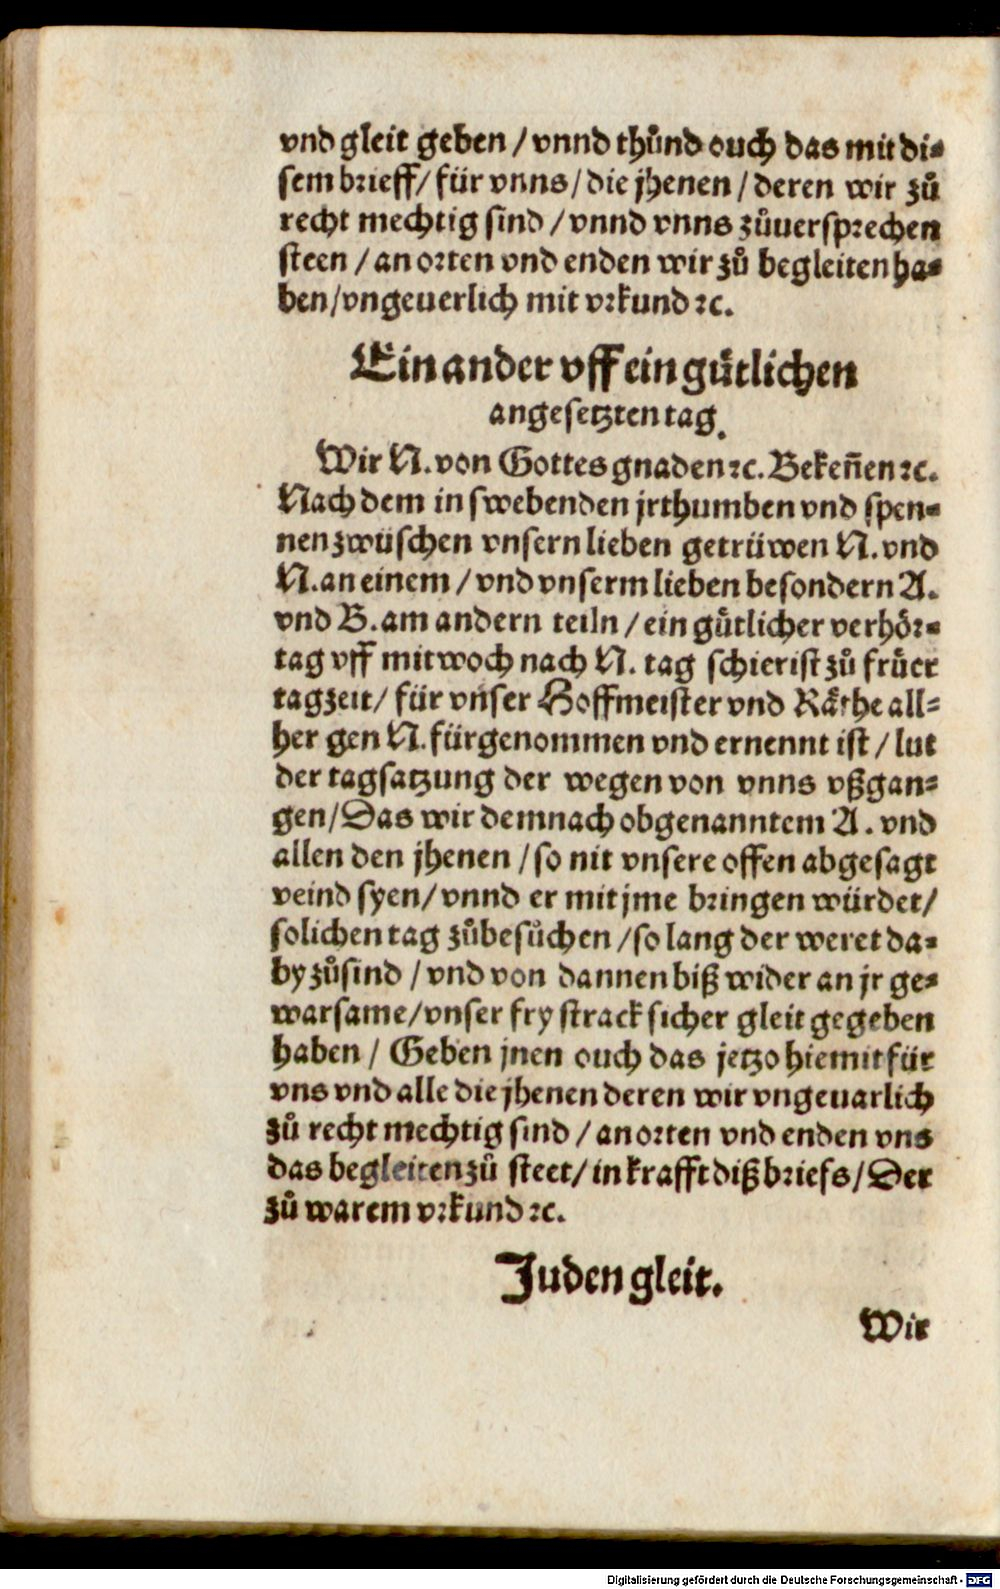 vnd gleit geben / vnnd thuͦnd ouch das mit di⸗
sem brieff / für vnns / die jhenen / deren wir zuͦ
recht mechtig sind / vnnd vnns zuͦuersprechen
steen / an orten vnd enden wir zuͦ begleiten ha⸗
ben / vngeuerlich mit vrkund ꝛc.
Ein ander vff ein guͤtlichen
angesetzten tag.
Wir N. von Gottes gnaden ꝛc. Bekeñen ꝛc.
Nach dem in swebenden jrthumben vnd spen⸗
nen zwüschen vnsern lieben getrüwen N. vnd
N. an einem / vnd vnserm lieben besondern A.
vnd B. am andern teiln / ein guͤtlicher verhoͤr⸗
tag vff mitwoch nach N. tag schierist zuͦ fruͤer
tagzeit / für vnser Hoffmeister vnd Raͤthe all⸗
her gen N. fürgenommen vnd ernennt ist / lut
der tagsatzung der wegen von vnns vßgan⸗
gen / Das wir demnach obgenanntem A. vnd
allen den jhenen / so nit vnsere offen abgesagt
veind syen / vnnd er mit jme bringen würdet /
solichen tag zuͦbesuͦchen / so lang der weret da⸗
by zuͦsind / vnd von dannen biß wider an jr ge⸗
warsame / vnser fry strack sicher gleit gegeben
haben / Geben jnen ouch das jetzo hiemit für
vns vnd alle die jhenen deren wir vngeuarlich
zuͦ recht mechtig sind / an orten vnd enden vns
das begleiten zuͦ steet / in krafft diß briefs / Der
zuͦ warem vrkund ꝛc.
Juden gleit.
Wir
Digitalisierung gefördert durch die Deutsche Forschungsgemeinschaft - DFG